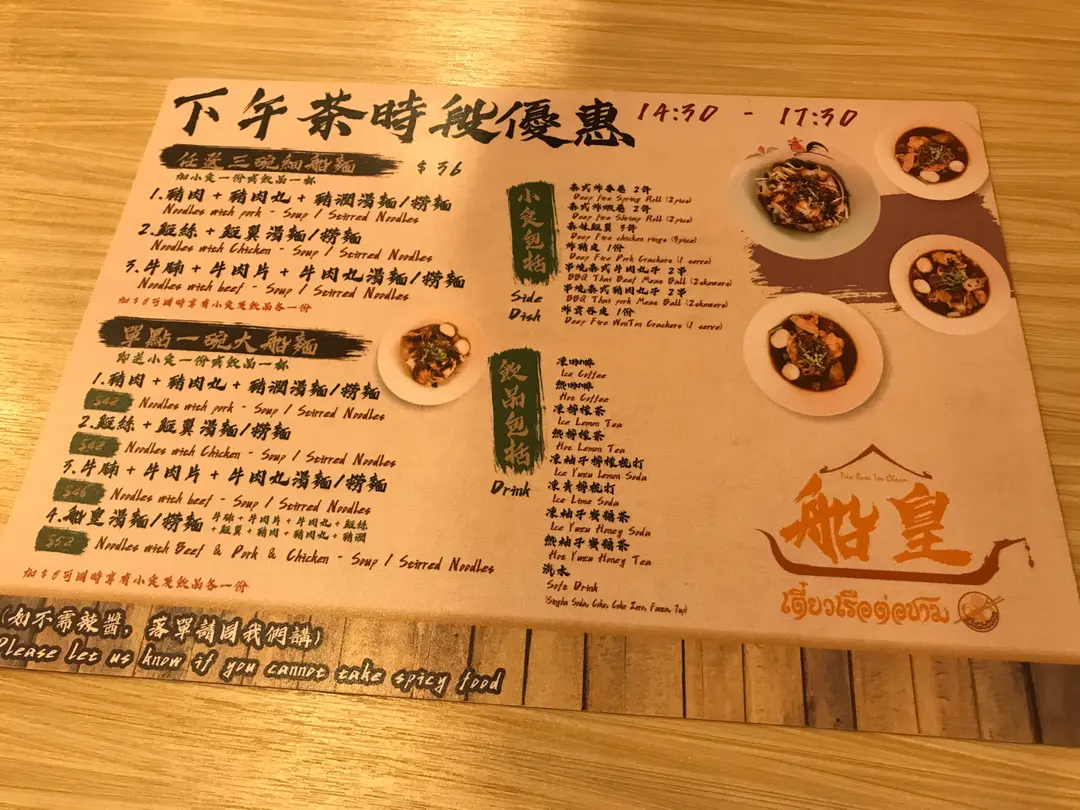 下午茶時段優惠 14:30 - 17:30
任選三碗細船麵 $36
加小食一份或飲品一杯
1.豬肉 + 豬肉丸 + 豬潤湯麵/撈麵
Noodles with pork - Soup / Stirred Noodles
2.雞絲 + 雞翼湯麵/撈麵
Noodles with Chicken - Soup / Stirred Noodles
3.牛腩 + 牛肉片 + 牛肉丸湯麵/撈麵
Noodles with beef - Soup / Stirred Noodles
加$6可同時享有小食及飲品各一份
單點一碗大船麵
即送小食一份或飲品一杯
1.豬肉 + 豬肉丸 + 豬潤湯麵/撈麵
$42 Noodles with pork - Soup / Stirred Noodles
2.雞絲 + 雞翼湯麵/撈麵
$42 Noodles with Chicken - Soup / Stirred Noodles
3.牛腩 + 牛肉片 + 牛肉丸湯麵/撈麵
$46 Noodles with beef - Soup / Stirred Noodles
4.船皇湯麵/撈麵 牛腩 + 牛肉片 + 牛肉丸 + 雞絲
+ 雞翼 + 豬肉 + 豬肉丸 + 豬潤
$52 Noodles with Beef & Pork & Chicken - Soup / Stirred Noodles
加$6可同時享有小食及飲品各一份
小食包括
Side
Dish
泰式炸春卷 2件
Deep Fire Spring Roll (2pice)
泰式炸蝦卷 2件
Deep fire Shrimp Roll (2pice)
泰味雞翼 3件
Deep Fire chicken rings (3pice)
炸豬皮 1份
Deep Fire Pork Crackers (1 serve)
串燒泰式牛肉丸子 2串
BBQ Thai Beef Meat Ball (2skewers)
串燒泰式豬肉丸子 2串
BBQ Thai pork Meat Ball (2skewers)
炸雲吞皮 1份
Deep Fire WonTon Crackers (1 serve)
飲品包括
Drink
凍咖啡
Ice Coffee
熱咖啡
Hot Coffee
凍檸檬茶
Ice Lemm Tea
熱檸檬茶
Hot Lemm Tea
凍柚子檸檬梳打
Ice Yuzu Lemm Soda
凍青檸梳打
Ice Lime Soda
凍柚子蜜糖茶
Ice Yuzu Honey Soda
熱柚子蜜糖茶
Hot Yuzu Honey Tea
汽水
Soft Drink
(Singha Soda, Coke, Coke Zero, Fanta, 7up)
船皇
เตี๋ยวเรือต่อชาม
(如不需辣醬, 落單請同我們講)
Please let us know if you cannot take spicy food